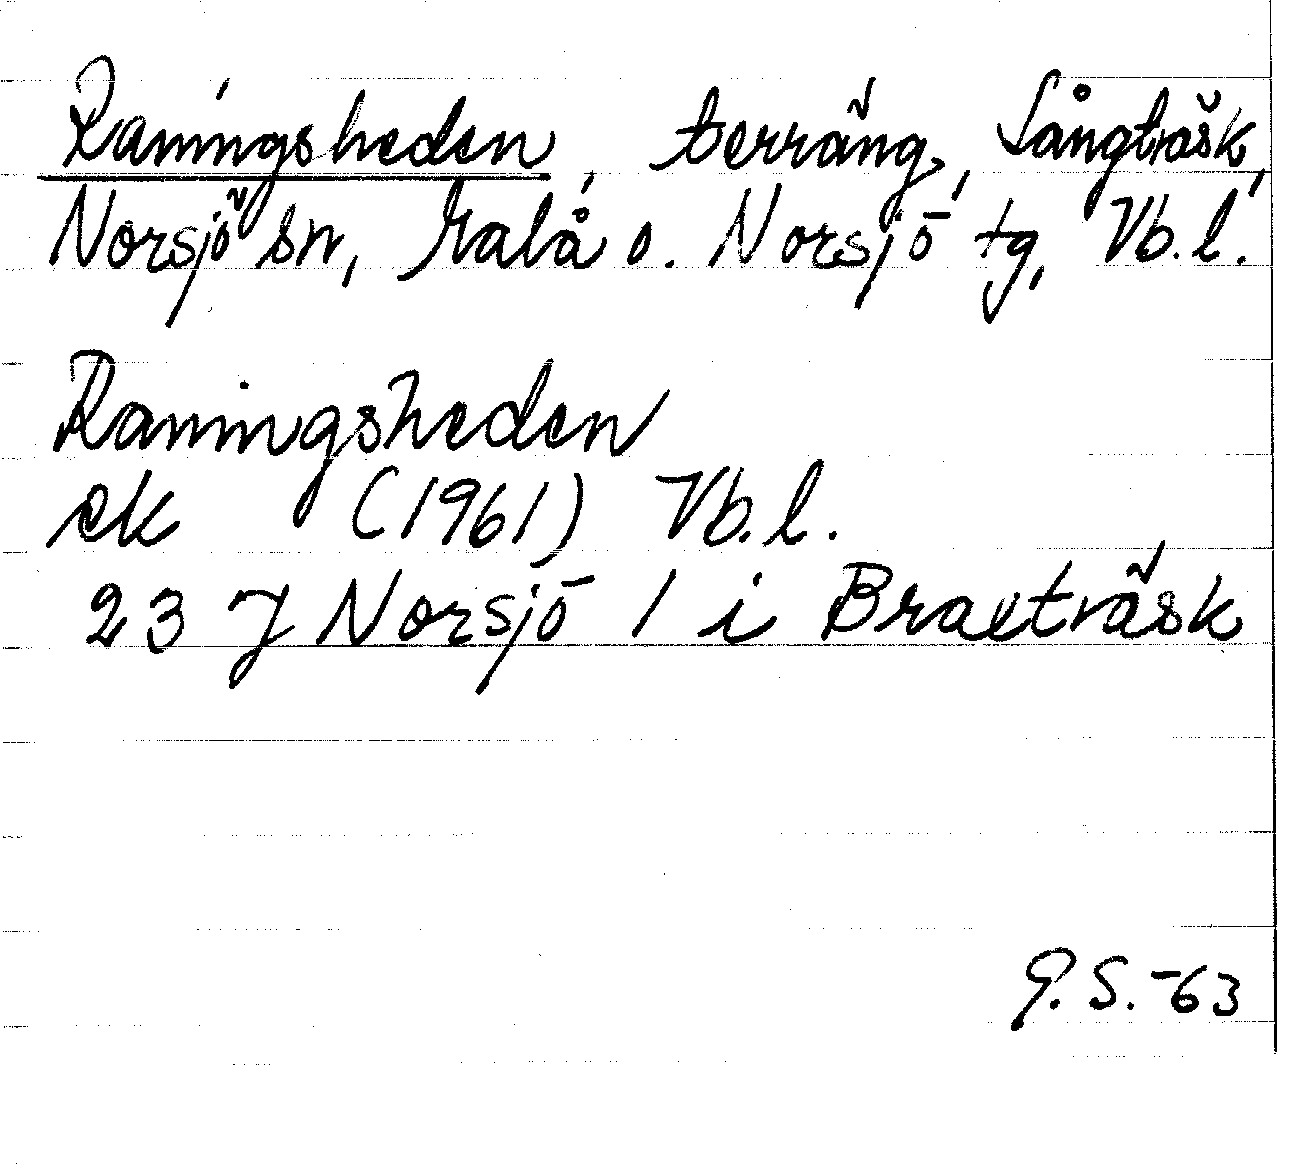 Raningsheden, terräng, Långträsk,
Norsjö sn, Malå o. Norsjö tg, Vb. l.
Raningsheden
ek (1961) Vb. l.
23 J Norsjö 1 i Braxträsk
G. S. -63